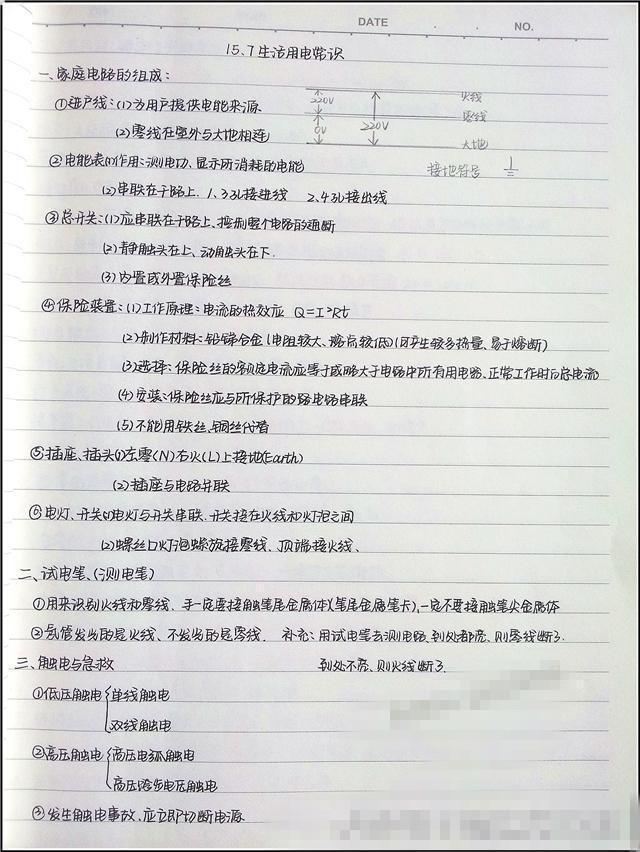 DATE NO.
15.7生活用电常识
一、家庭电路的组成：
①进户线：(1)为用户提供电能来源
220V 火线
零线
(2)零线在室外与大地相连
0V 220V 大地
②电能表(1)作用：测电功、显示所消耗的电能
接地符号
(2)串联在干路上. 1、3孔接进线 2、4孔接出线
③总开关：(1)应串联在干路上、控制整个电路的通断
(2)静触头在上、动触头在下.
(3)内置或外置保险丝
④保险装置：(1)工作原理：电流的热效应 Q=I²Rt
(2)制作材料：铅锑合金(电阻较大、熔点较低)(可产生较多热量、易于熔断)
(3)选择：保险丝的额定电流应等于或略大于电路中所有用电路、正常工作时的总电流
(4)安装：保险丝应与所保护的路电路串联
(5)不能用铁丝、铜丝代替
⑤插座、插头(1)左零(N)右火(L)上接地(Earth)
(2)插座与电路并联
⑥电灯、开关(1)电灯与开关串联、开关接在火线和灯泡之间
(2)螺丝口灯泡螺旋接零线、顶端接火线、
二、试电笔、(测电笔)
①用来识别火线和零线. 手一定要接触笔尾金属体(笔尾金属笔卡)、一定不要接触笔尖金属体
②氖管发光的是火线、不发光的是零线. 补充：用试电笔去测电路、到处都亮、则零线断了.
三、触电与急救 到处不亮、则火线断了.
①低压触电 单线触电
双线触电
②高压触电 高压电弧触电
高压跨步电压触电
③发生触电事故、应立即切断电源